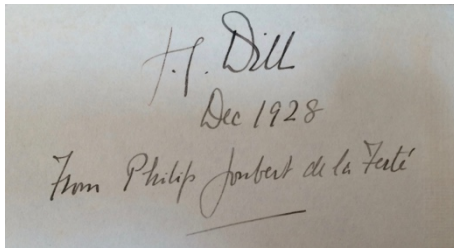 J.G. Dill
Dec 1928
From Philip Joubert de la Ferté